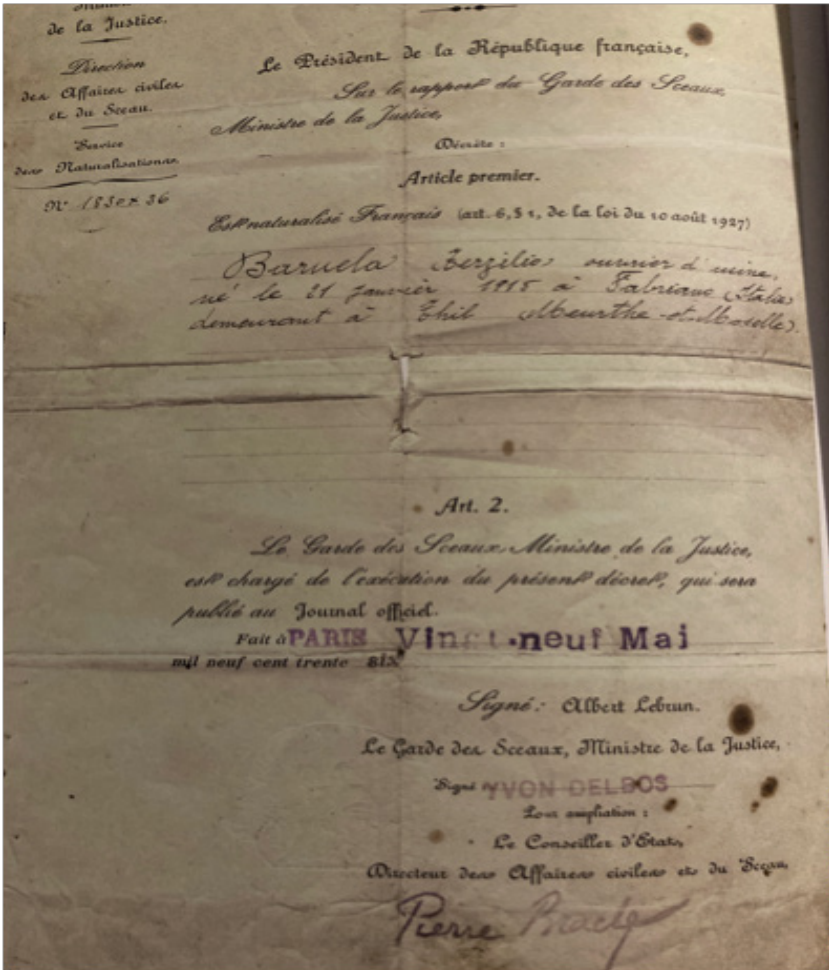 de la Justice.
Direction
des Affaires civiles
et du Sceau.
Service
des Naturalisations.
N° 1830 x 36
Le Président de la République française,
Sur le rapport du Garde des Sceaux,
Ministre de la Justice,
Décrète :
Article premier.
Est naturalisé Français (art. 6, § 1, de la loi du 10 août 1927)
Baruela ouvrier d'usine,
né le 21 janvier 1915 à Fabriano (Italie)
demeurant à Thil (Meurthe-et-Moselle).
Art. 2.
Le Garde des Sceaux, Ministre de la Justice,
est chargé de l'exécution du présent décret, qui sera
publié au Journal officiel.
Fait à PARIS Vingt-neuf Mai
mil neuf cent trente SIX
Signé : Albert Lebrun.
Le Garde des Sceaux, Ministre de la Justice,
Signé : YVON DELBOS
Pour ampliation :
Le Conseiller d'Etat,
Directeur des Affaires civiles et du Sceau,
Pierre